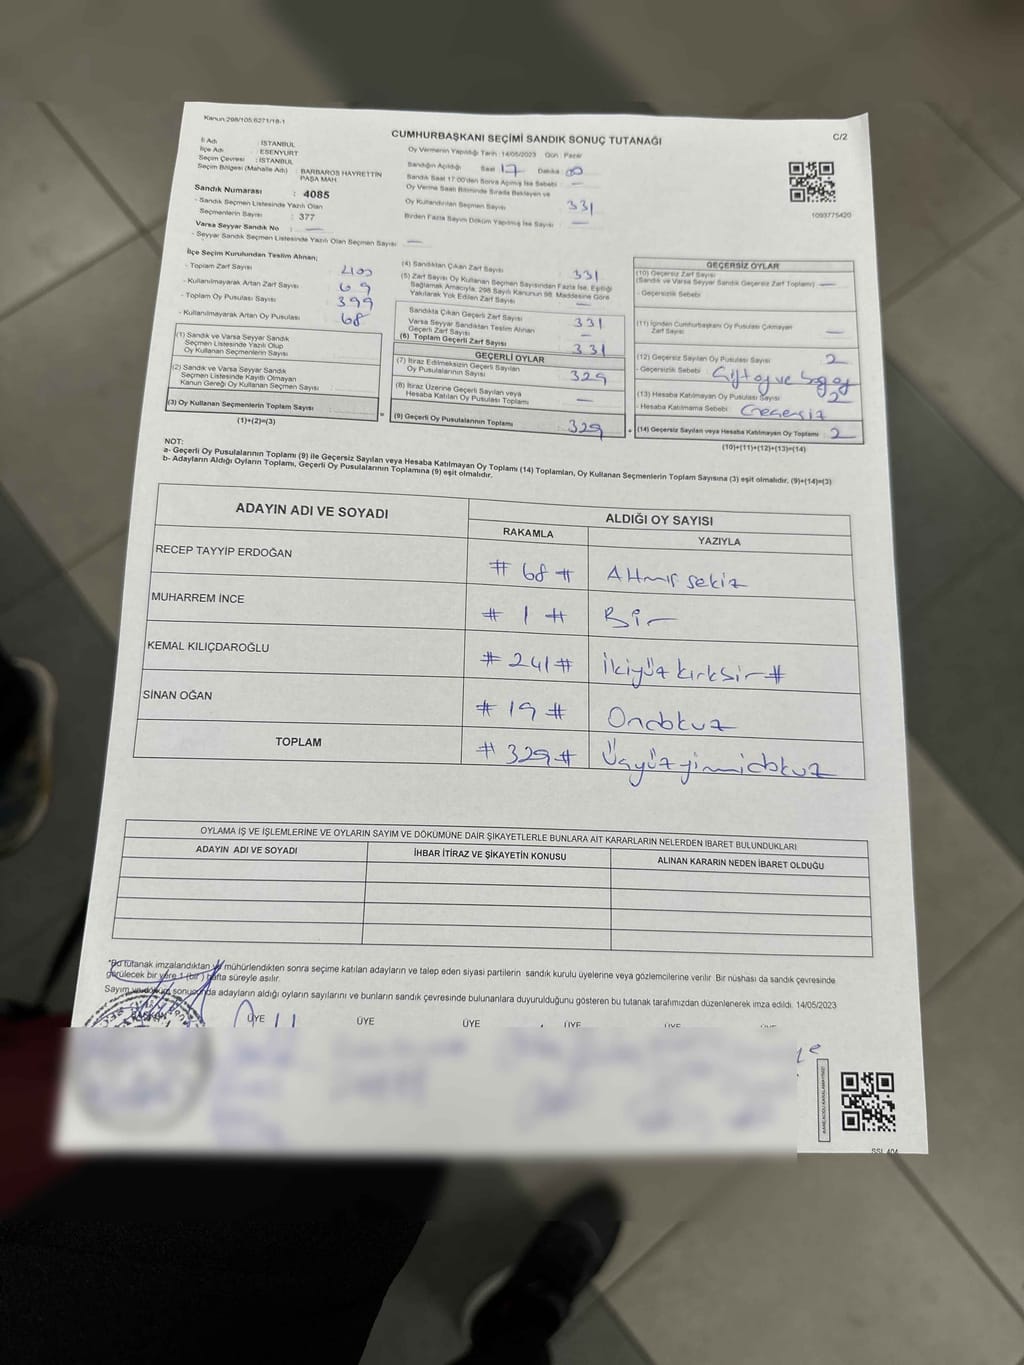 Kanun:298/105;6271/18-1
C/2
CUMHURBAŞKANI SEÇİMİ SANDIK SONUÇ TUTANAĞI
İl Adı : İSTANBUL
İlçe Adı : ESENYURT
Seçim Çevresi : İSTANBUL
Seçim Bölgesi (Mahalle Adı) : BARBAROS HAYRETTİN PAŞA MAH.
Sandık Numarası : 4085
- Sandık Seçmen Listesinde Yazılı Olan
Seçmenlerin Sayısı : 377
Varsa Seyyar Sandık No : —
- Seyyar Sandık Seçmen Listesinde Yazılı Olan Seçmen Sayısı : —
Oy Vermenin Yapıldığı Tarih : 14/05/2023 Gün : Pazar
Sandığın Açıldığı Saat 17 Dakika 00
Sandık Saat 17:00'den Sonra Açılmış İse Sebebi : —
Oy Verme Saati Bitiminde Sırada Bekleyen ve
Oy Kullandırılan Seçmen Sayısı 331
Birden Fazla Sayım Döküm Yapılmış İse Sayısı : —
1093775420
İlçe Seçim Kurulundan Teslim Alınan;
- Toplam Zarf Sayısı 400
- Kullanılmayarak Artan Zarf Sayısı 69
- Toplam Oy Pusulası Sayısı 399
- Kullanılmayarak Artan Oy Pusulası 68
(1) Sandık ve Varsa Seyyar Sandık
Seçmen Listesinde Yazılı Olup
Oy Kullanan Seçmenlerin Sayısı
(2) Sandık ve Varsa Seyyar Sandık
Seçmen Listesinde Kayıtlı Olmayan
Kanun Gereği Oy Kullanan Seçmen Sayısı
(3) Oy Kullanan Seçmenlerin Toplam Sayısı
(1)+(2)=(3)
(4) Sandıktan Çıkan Zarf Sayısı 331
(5) Zarf Sayısı Oy Kullanan Seçmen Sayısından Fazla İse, Eşitliği
Sağlamak Amacıyla, 298 Sayılı Kanunun 98. Maddesine Göre
Yakılarak Yok Edilen Zarf Sayısı —
Sandıkta Çıkan Geçerli Zarf Sayısı 331
Varsa Seyyar Sandıktan Teslim Alınan
Geçerli Zarf Sayısı —
(6) Toplam Geçerli Zarf Sayısı 331
GEÇERLİ OYLAR
(7) İtiraz Edilmeksizin Geçerli Sayılan
Oy Pusulalarının Sayısı 329
(8) İtiraz Üzerine Geçerli Sayılan veya
Hesaba Katılan Oy Pusulası Toplamı —
(9) Geçerli Oy Pusulalarının Toplamı 329
GEÇERSİZ OYLAR
(10) Geçersiz Zarf Sayısı
(Sandık ve Varsa Seyyar Sandık Geçersiz Zarf Toplamı) —
- Geçersizlik Sebebi
(11) İçinden Cumhurbaşkanı Oy Pusulası Çıkmayan
Zarf Sayısı —
(12) Geçersiz Sayılan Oy Pusulası Sayısı 2
- Geçersizlik Sebebi : Çift oy ve boş oy
(13) Hesaba Katılmayan Oy Pusulası Sayısı 2
- Hesaba Katılmama Sebebi : Geçersiz
(14) Geçersiz Sayılan veya Hesaba Katılmayan Oy Toplamı : 2
(10)+(11)+(12)+(13)=(14)
NOT:
a- Geçerli Oy Pusulalarının Toplamı (9) ile Geçersiz Sayılan veya Hesaba Katılmayan Oy Toplamı (14) Toplamları, Oy Kullanan Seçmenlerin Toplam Sayısına (3) eşit olmalıdır. (9)+(14)=(3)
b- Adayların Aldığı Oyların Toplamı, Geçerli Oy Pusulalarının Toplamına (9) eşit olmalıdır.
ADAYIN ADI VE SOYADI ALDIĞI OY SAYISI
RAKAMLA YAZIYLA
RECEP TAYYİP ERDOĞAN # 68 # Altmış sekiz
MUHARREM İNCE # 1 # Bir
KEMAL KILIÇDAROĞLU # 241 # İkiyüz kırkbir #
SİNAN OĞAN # 19 # Ondokuz
TOPLAM # 329 # Üçyüz yirmidokuz
OYLAMA İŞ VE İŞLEMLERİNE VE OYLARIN SAYIM VE DÖKÜMÜNE DAİR ŞİKAYETLERLE BUNLARA AİT KARARLARIN NELERDEN İBARET BULUNDUKLARI
ADAYIN ADI VE SOYADI İHBAR İTİRAZ VE ŞİKAYETİN KONUSU ALINAN KARARIN NEDEN İBARET OLDUĞU
*Bu tutanak imzalandıktan ve mühürlendikten sonra seçime katılan adayların ve talep eden siyasi partilerin sandık kurulu üyelerine veya gözlemcilerine verilir. Bir nüshası da sandık çevresinde
görülecek bir yere 1 (bir) hafta süreyle asılır.
Sayım ve döküm sonucunda adayların aldığı oyların sayılarını ve bunların sandık çevresinde bulunanlara duyurulduğunu gösteren bu tutanak tarafımızdan düzenlenerek imza edildi. 14/05/2023
BAŞKAN ÜYE ÜYE ÜYE ÜYE ÜYE